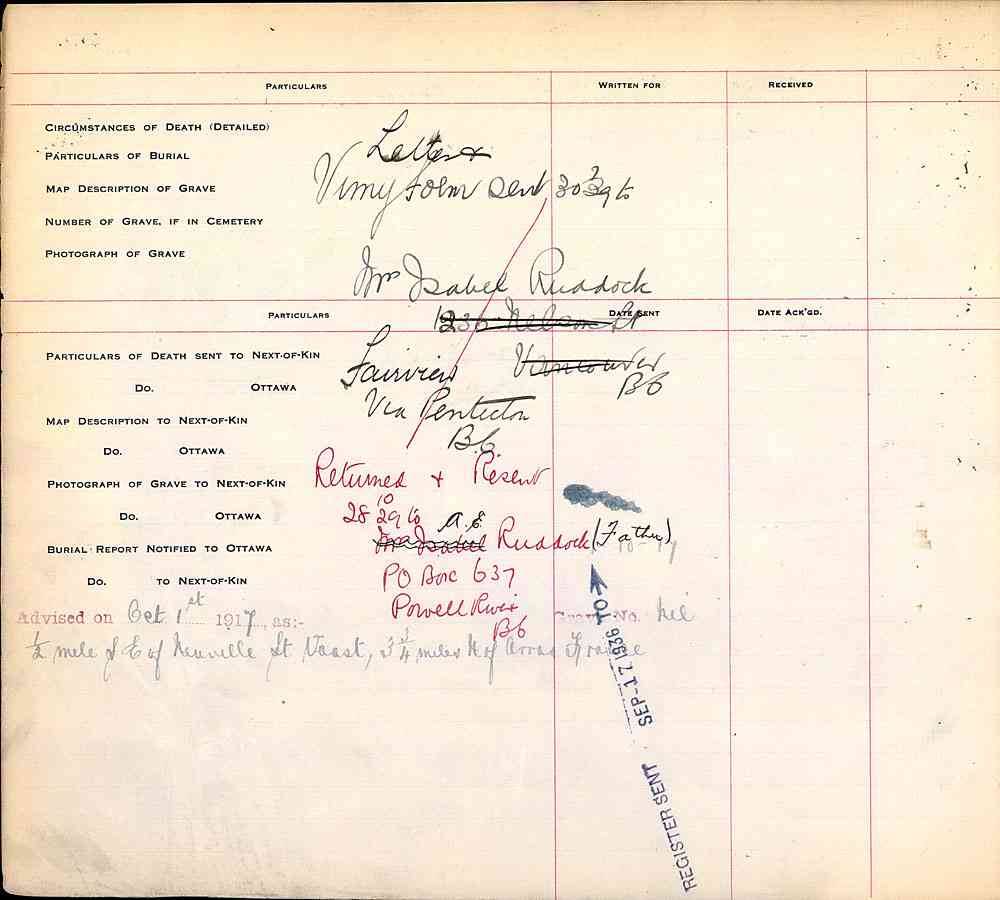 PARTICULARS WRITTEN FOR RECEIVED
CIRCUMSTANCES OF DEATH (DETAILED)
PARTICULARS OF BURIAL Letter &
MAP DESCRIPTION OF GRAVE Vimy Form sent 30 3/29 to
NUMBER OF GRAVE, IF IN CEMETERY
PHOTOGRAPH OF GRAVE
Mrs Isabel Ruddock
PARTICULARS DATE SENT DATE ACK'GD.
1236 Nelson St
PARTICULARS OF DEATH SENT TO NEXT-OF-KIN Fairview Vancouver
DO. OTTAWA BC
MAP DESCRIPTION TO NEXT-OF-KIN Via Penticton
BC
DO. OTTAWA
PHOTOGRAPH OF GRAVE TO NEXT-OF-KIN Returned & Resent
DO. OTTAWA 28 10/29 to A.E.
BURIAL REPORT NOTIFIED TO OTTAWA Mrs Isabel Ruddock (Father)
DO. TO NEXT-OF-KIN PO Box 637
Powell River
BC
Advised on Oct 1st 1917, as:- Grave No. Nil
½ mile S E of Neuville St Vaast, 3¾ miles N of Arras France
REGISTER SENT SEP 17 1936 TO